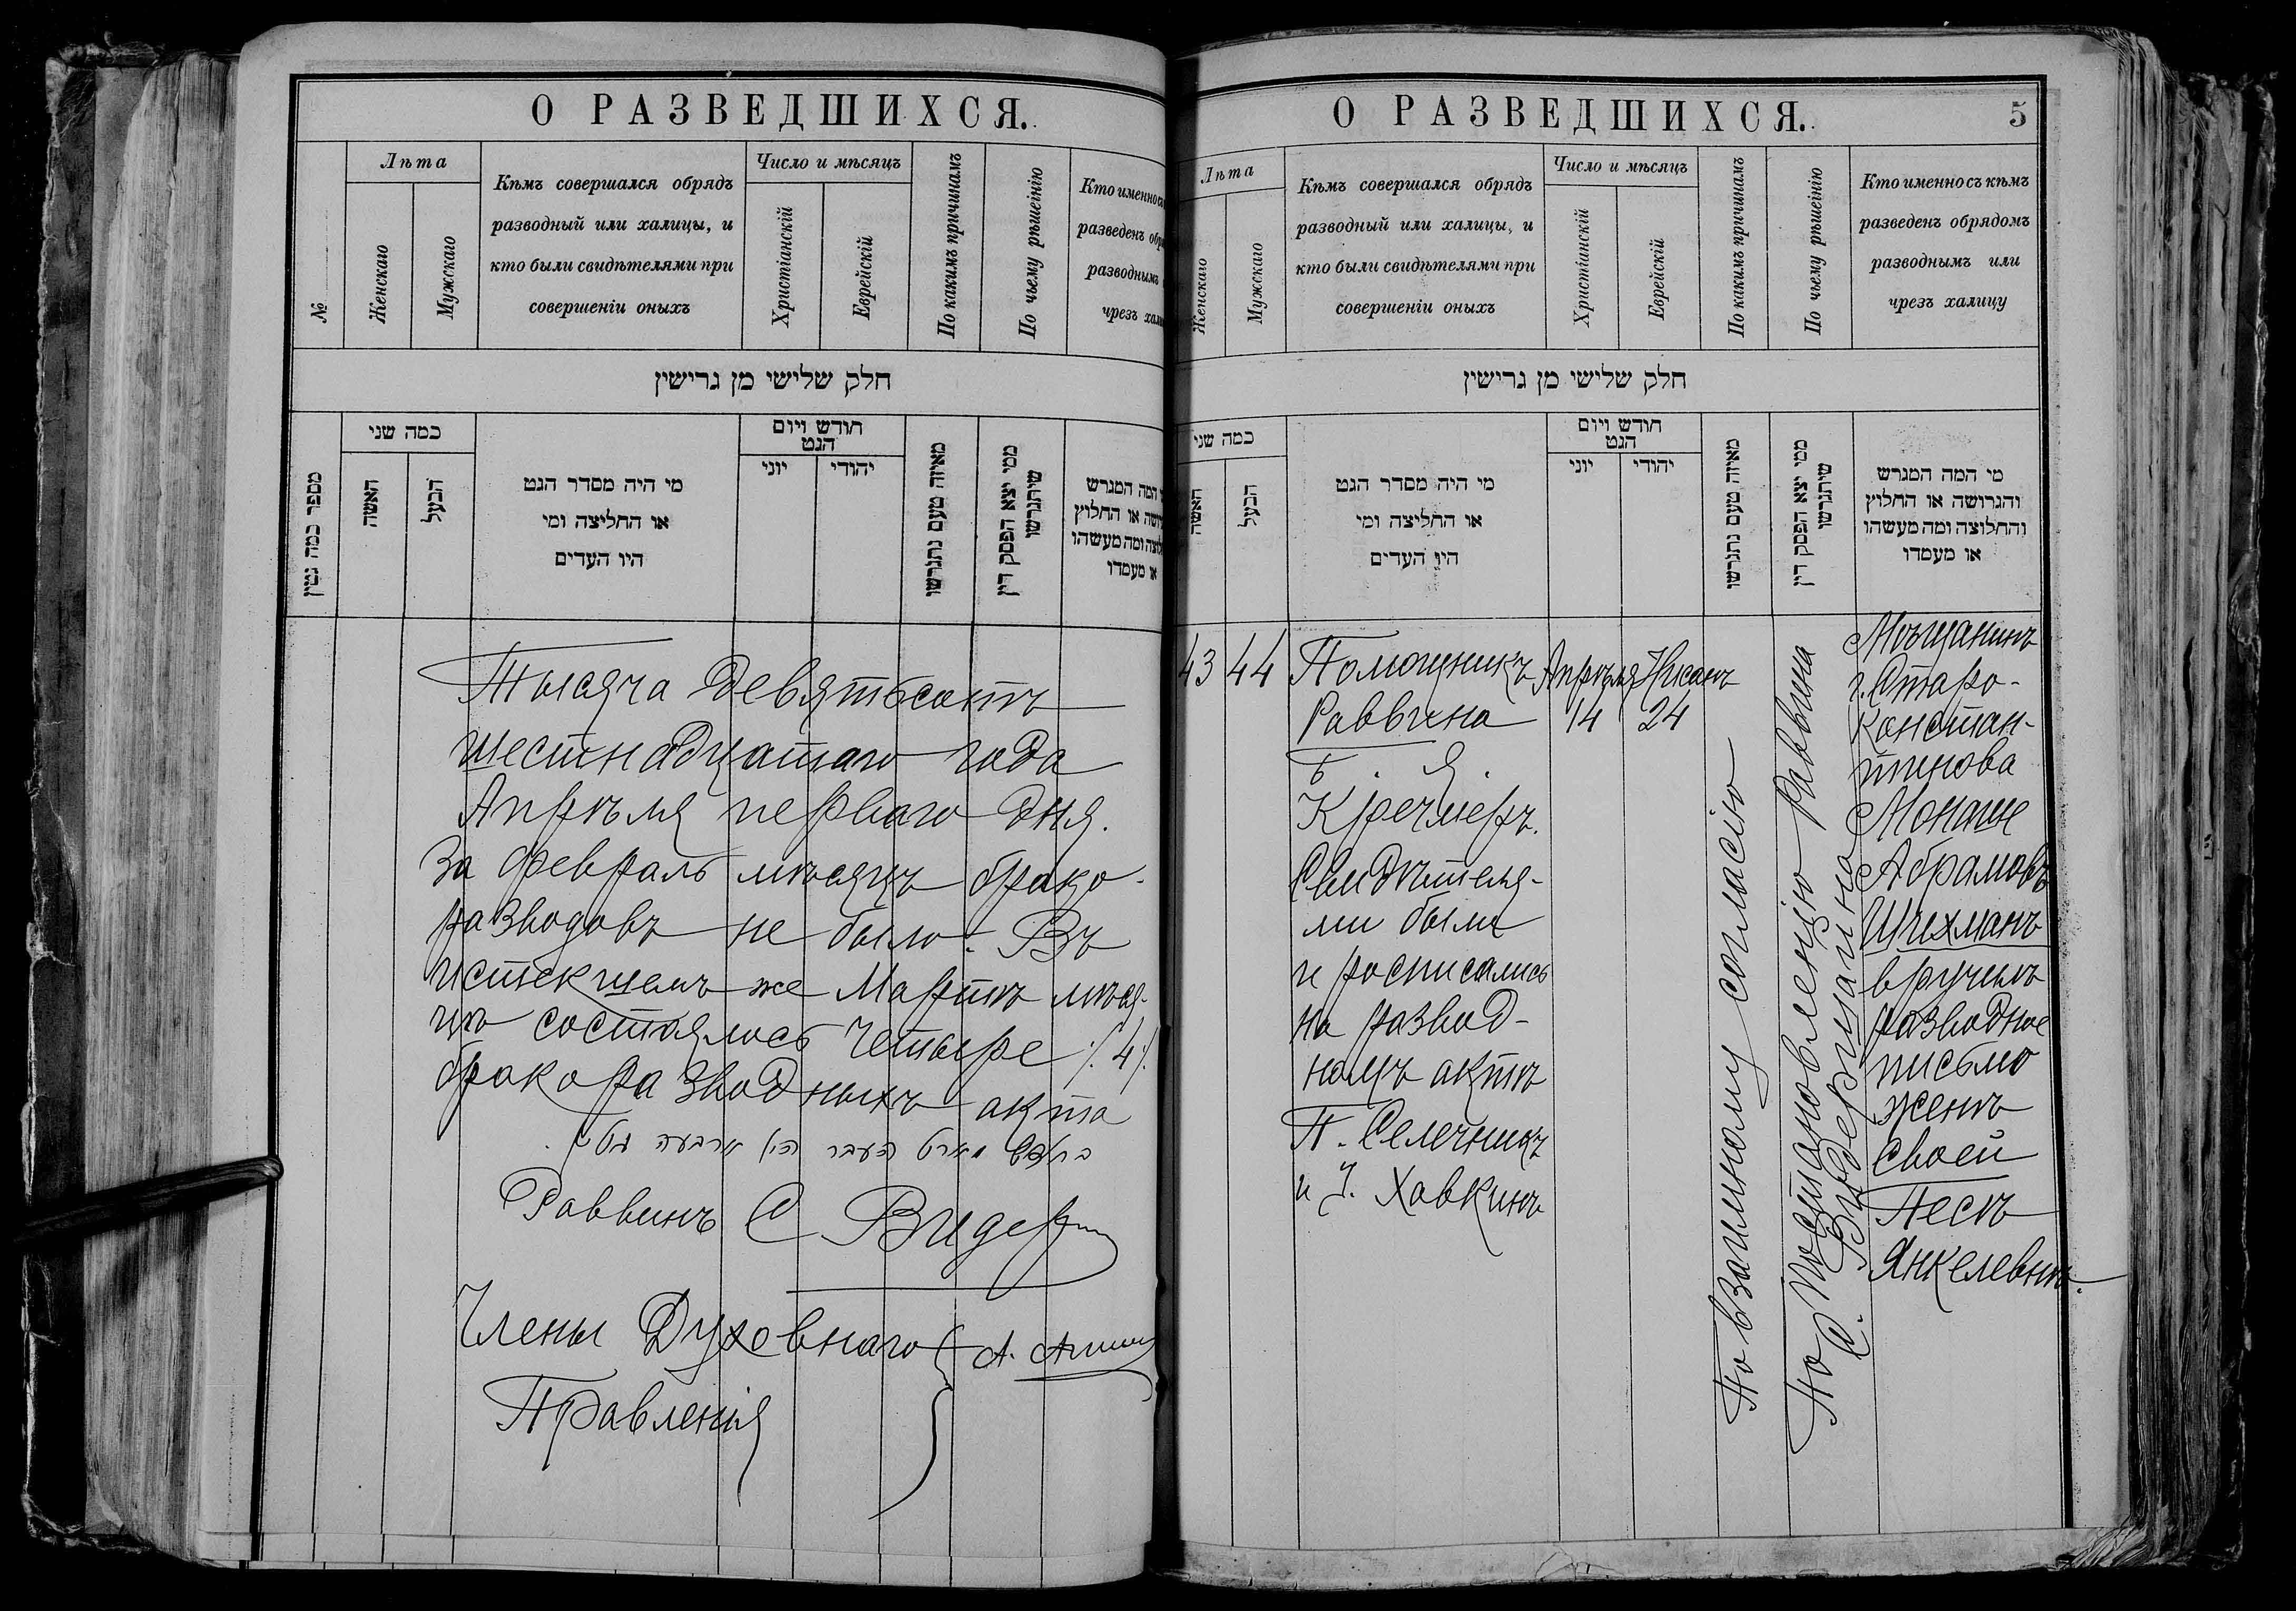 О РАЗВЕДШИХСЯ.
№
Лѣта
Женскаго
Мужскаго
Кѣмъ совершался обрядъ
разводный или халицы, и
кто были свидѣтелями при
совершеніи оныхъ
Число и мѣсяцъ
Христіанскій
Еврейскій
По какимъ причинамъ
По чьему рѣшенію
Кто именно съ
разведенъ обря
разводнымъ
чрезъ хали
חלק שלישי מן גרישין
מספר כמה גטין
כמה שני
האשה
הבעל
מי היה מסדר הגט
או החליצה ומי
היו העדים
חודש ויום
הגט
יוני
יהודי
מאיזה טעם נתגרשו
ממי יצא הפסק דין
שיתגרשו
המה המגרש
או החלוץ
ומה מעשהו
או מעמדו
Тысяча девятьсотъ
шестнадцатаго года
Апрѣля перваго дня.
За февраль мѣсяцъ брако-
разводовъ не было. Въ
истекшемъ же Мартѣ мѣся-
цѣ состоялось четыре /4/.
бракоразводныхъ акта
בחדש מארט העבר היו ארבעה גטין.
Раввинъ С Видер
Члены Духовнаго
Правленія
А.
О РАЗВЕДШИХСЯ.
5
Лѣта
Женскаго
Мужскаго
Кѣмъ совершался обрядъ
разводный или халицы, и
кто были свидѣтелями при
совершеніи оныхъ
Число и мѣсяцъ
Христіанскій
Еврейскій
По какимъ причинамъ
По чьему рѣшенію
Кто именно съ кѣмъ
разведенъ обрядомъ
разводнымъ или
чрезъ халицу
חלק שלישי מן גרישין
כמה שני
האשה
הבעל
מי היה מסדר הגט
או החליצה ומי
היו העדים
חודש ויום
הגט
יוני
יהודי
מאיזה טעם נתגרשו
ממי יצא הפסק דין
שיתגרשו
מי המה המגרש
והגרושה או החלוץ
והחלוצה ומה מעשהו
או מעמדו
43
44
Помощникъ
Раввина
Б. Я.
Кречмеръ.
Свидѣтеля-
ми были
и росписались
на развод-
номъ актѣ
П. Селечникъ
и І. Хавкинъ
Апрѣля
14
Нисанъ
24
По взаимному согласію
По постановленію Раввина
С. Видергцайна
Мѣщанинъ
г. Старо-
констан-
тинова
Монаше
Абрамовъ
Шихманъ
вручилъ
разводное
письмо
женѣ
своей
Песѣ
Янкелевнѣ.